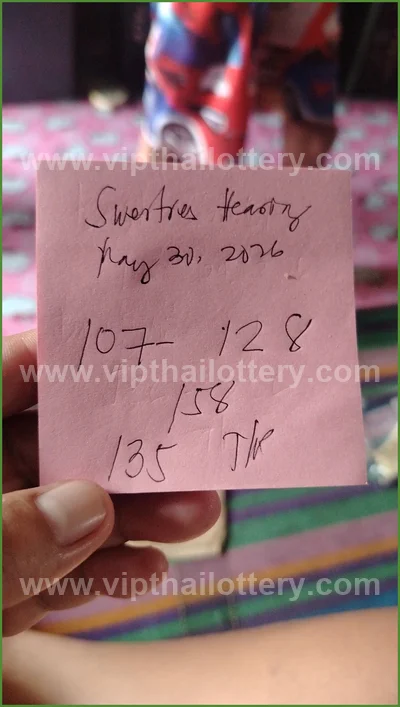 www.vipthailottery.com
Swertres Hearing
May 30, 2026
107- 128
www.vipthailottery.com
158
135 T/R
www.vipthailottery.com